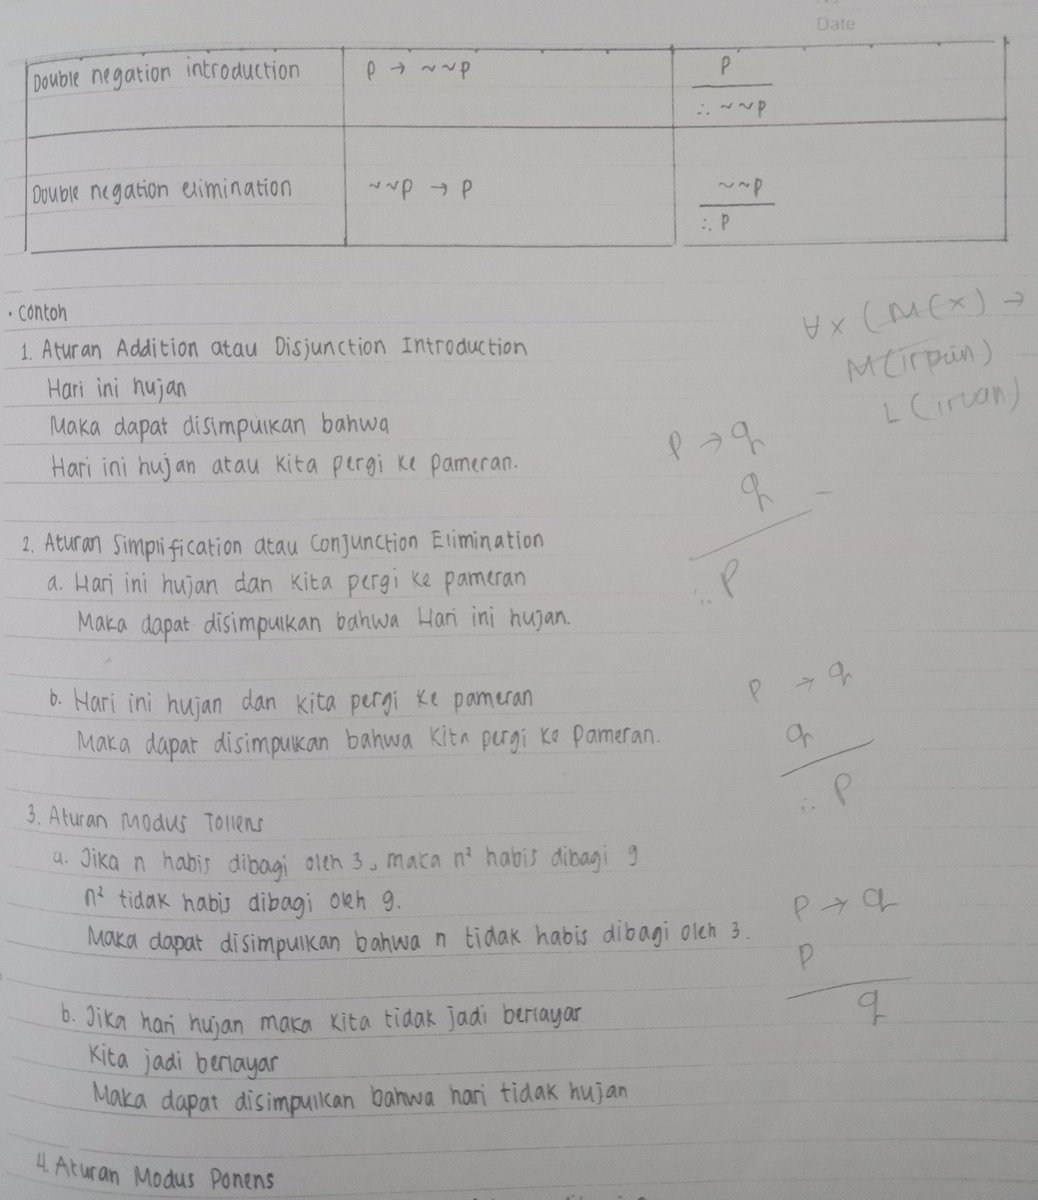 Date
Double negation introduction p → ~~p p
∴ ~~p
Double negation elimination ~~p → p ~~p
∴ p
• Contoh
1. Aturan Addition atau Disjunction Introduction
Hari ini hujan
Maka dapat disimpulkan bahwa
Hari ini hujan atau kita pergi ke pameran.
2. Aturan Simplification atau Conjunction Elimination
a. Hari ini hujan dan kita pergi ke pameran
Maka dapat disimpulkan bahwa Hari ini hujan.
b. Hari ini hujan dan kita pergi ke pameran
Maka dapat disimpulkan bahwa kita pergi ke Pameran.
3. Aturan Modus Tollens
a. Jika n habis dibagi oleh 3, maka n² habis dibagi 9
n² tidak habis dibagi oleh 9.
Maka dapat disimpulkan bahwa n tidak habis dibagi oleh 3.
b. Jika hari hujan maka kita tidak jadi berlayar
Kita jadi berlayar
Maka dapat disimpulkan bahwa hari tidak hujan
4. Aturan Modus Ponens
∀x (M(x) →
M(irpan)
L(irvan)
p → q
q
∴ p
p → q
q
∴ p
p → q
p
q